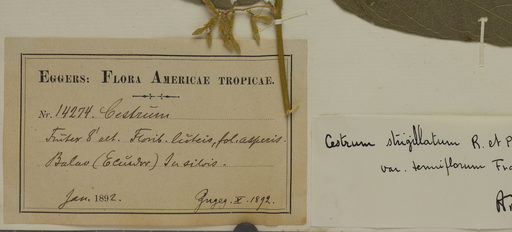 EGGERS: FLORA AMERICAE TROPICAE.
Nr. 14274. Cestrum
Frutex 8' alt. Florib. luteis, fol. asperis.
Balao (Ecuador) In silvis.
Jan. 1892. X. 1892.
Cestrum strigillatum R. et P
var. tenuiflorum